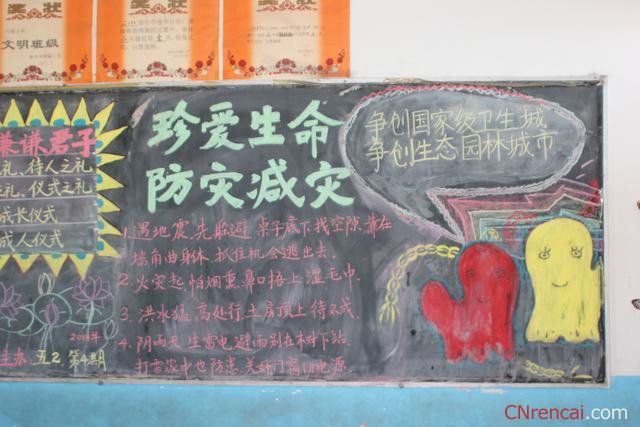 奖状
奖状
奖状
文明班级
谦谦君子
礼、待人之礼
礼、仪式之礼
成长仪式
成人仪式
2014年
主办 五2 第4期
珍爱生命
防灾减灾
1.遇地震,先躲避,桌子底下找空隙,靠在
墙角曲身体,抓住机会逃出去。
2.火灾起,怕烟熏,鼻口捂上湿毛巾.
3.洪水猛,高处行,土房顶上待不成.
4.阴雨天,生雷电,避雨别在树下站.
打雷家中也防患,关好门窗切电源.
争创国家级卫生城
争创生态园林城市
CNrencai.com